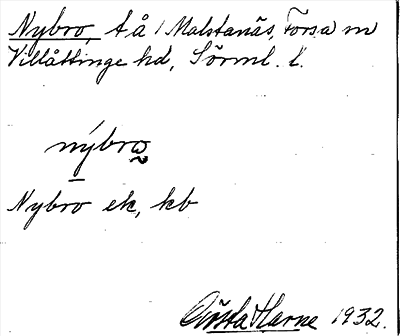 Nybro, t å / Malstanäs, Forsa m
Villåttinge hd, Sörml. l.
nýbro
Nybro ek, kb
Gösta Harne 1932.